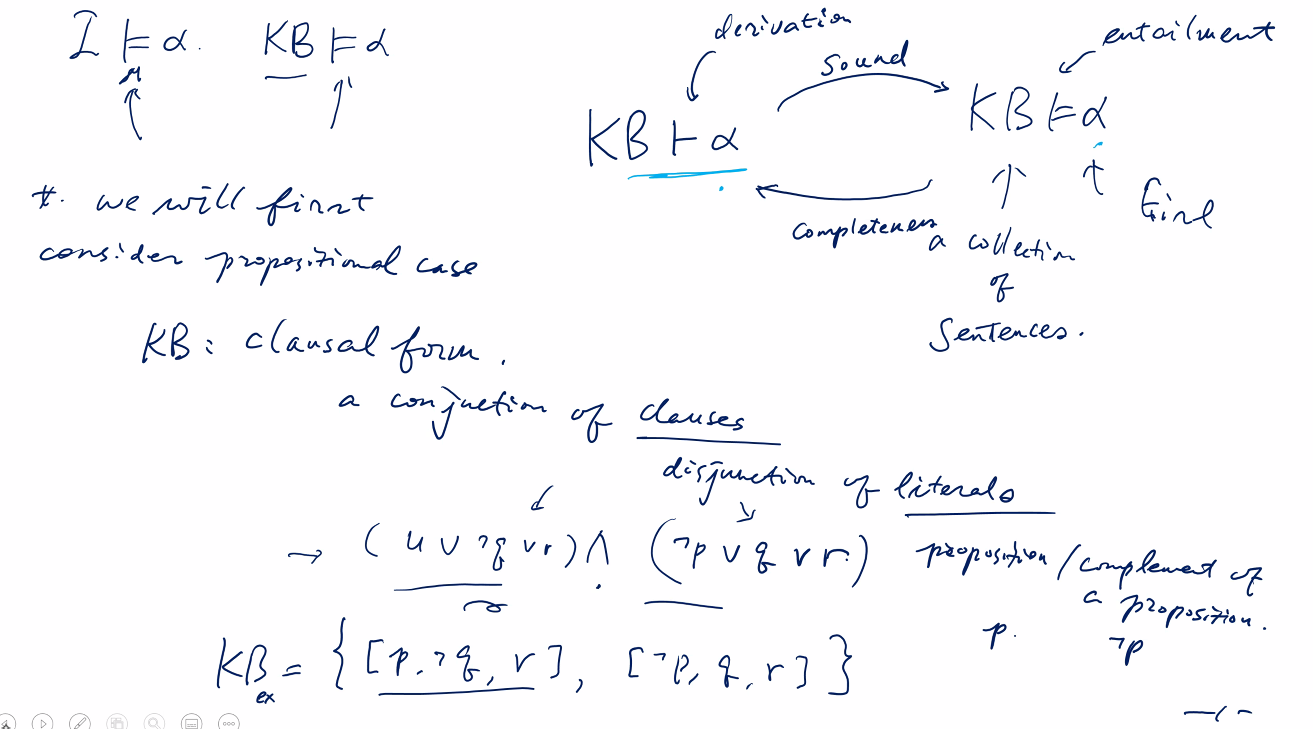 I ⊨ α. KB ⊨ α
μ
derivation
sound
entailment
KB ⊢ α
KB ⊨ α
completeness
a collection
of
sentences.
Girl
*. we will first
consider propositional case
KB: clausal form.
a conjuction of clauses
disjunction of literals
→ (u ∨ ¬q ∨ r) ∧ (¬p ∨ q ∨ r.)
proposition / complement of
a proposition.
p. ¬p
KBex = { [p, ¬q, r], [¬p, q, r] }